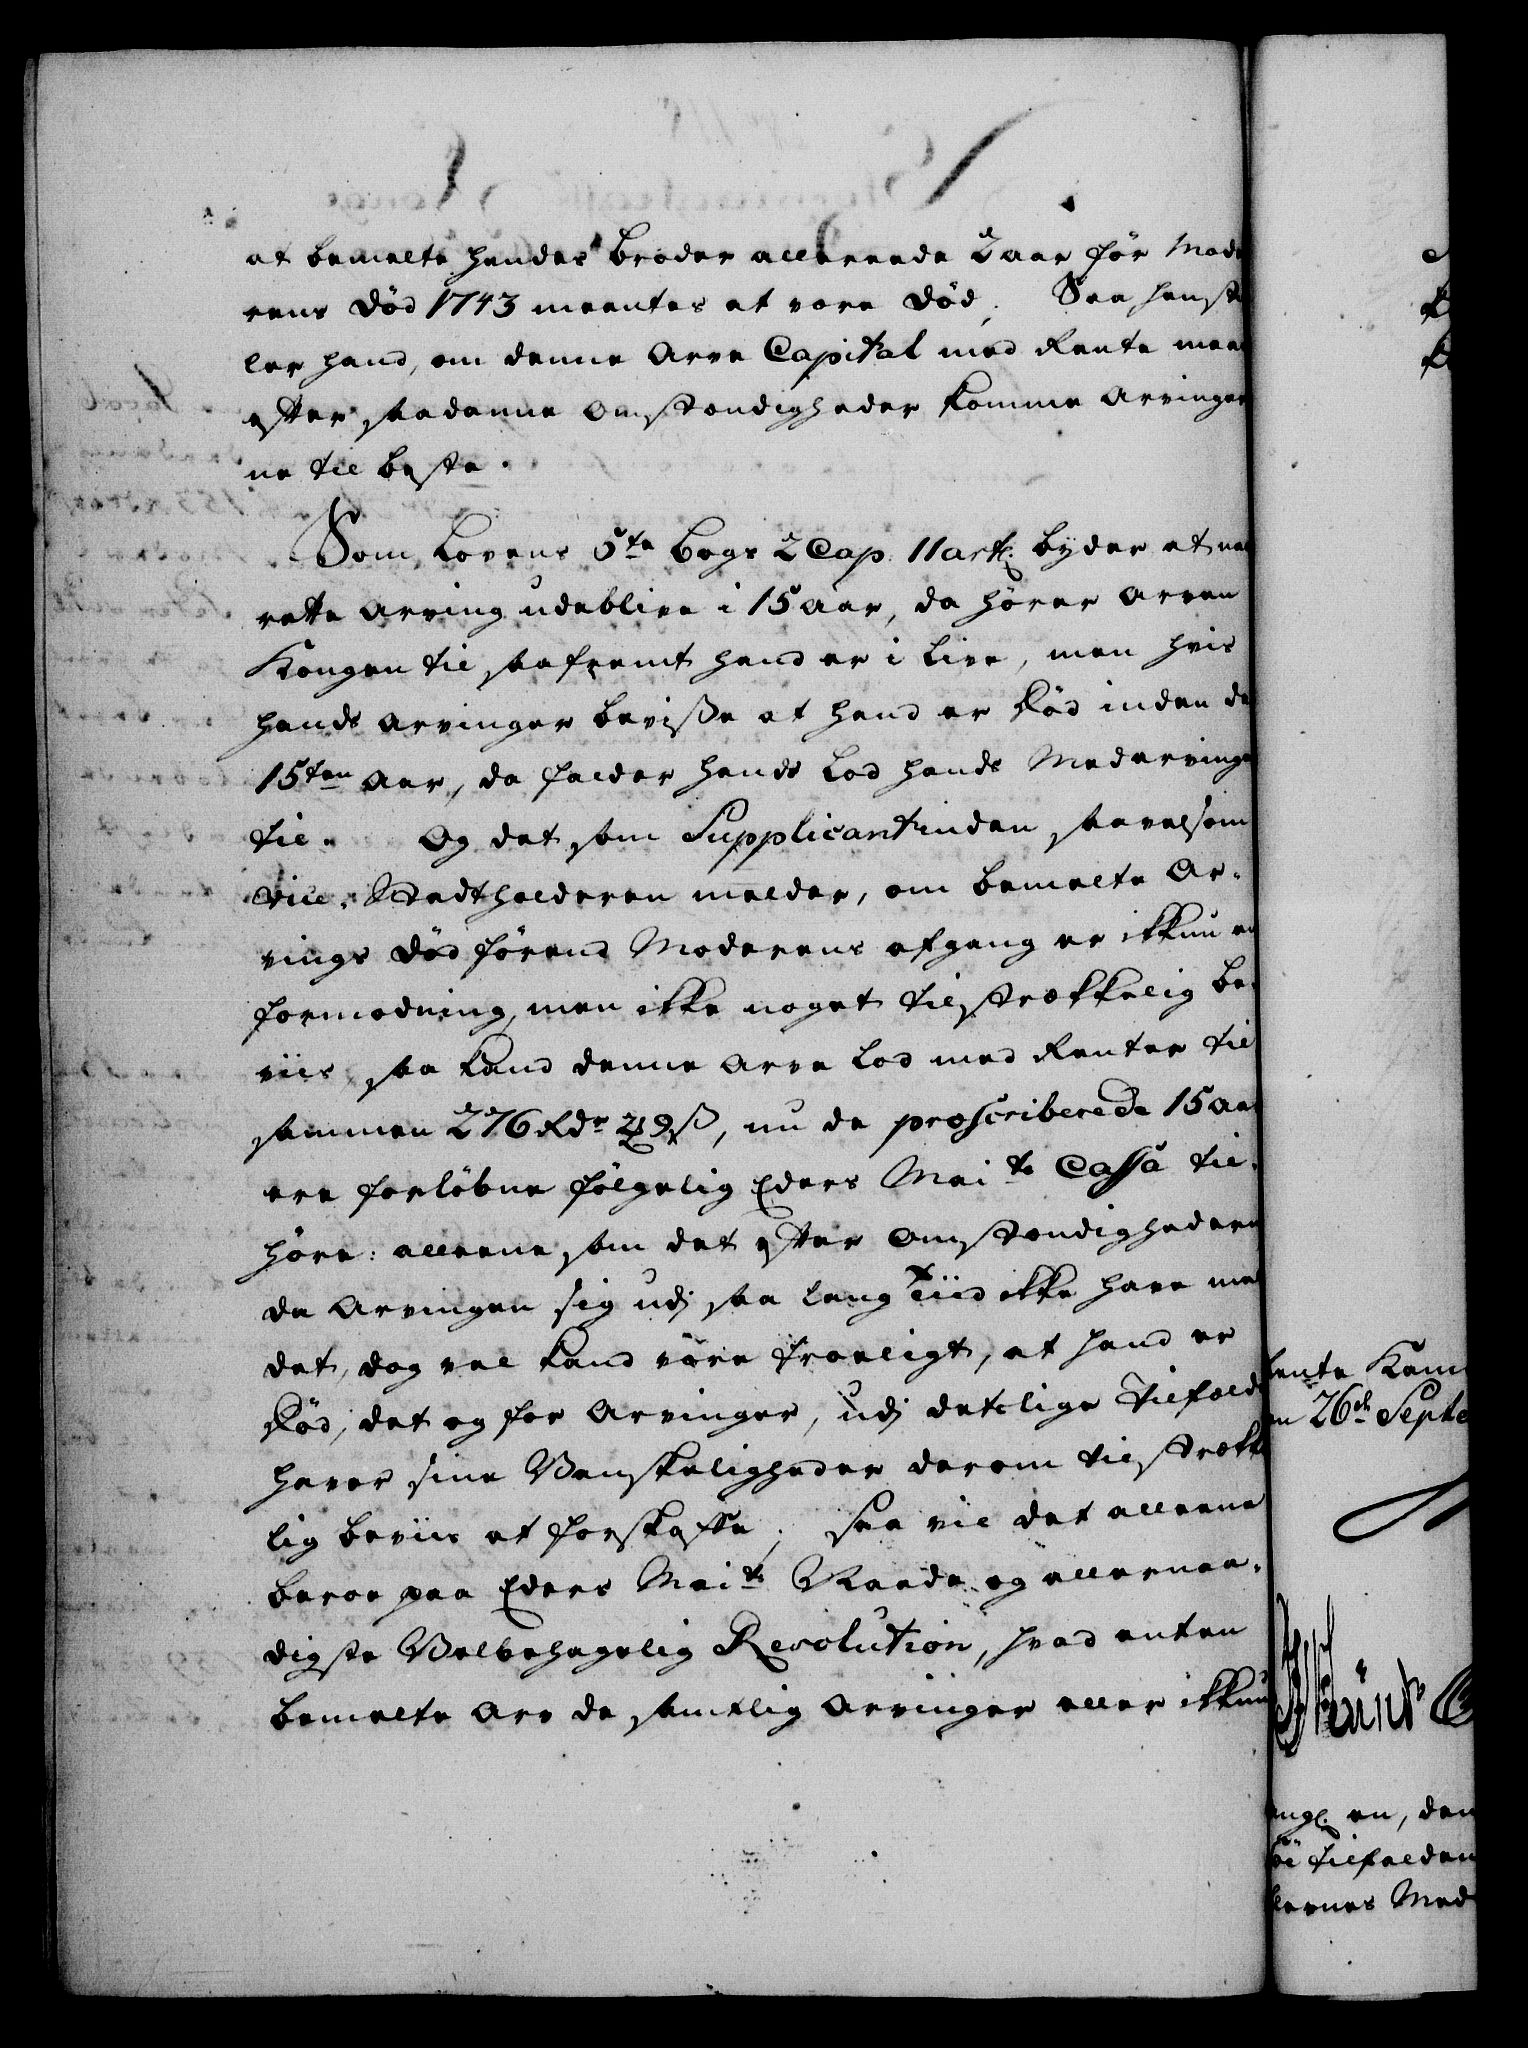 at bemelte hendes broder allereede 2 aar før Mode
rens død 1743 meentes at være død, Saa henstil
ler hand, om denne Arve Capital med Rente maae
efter saadanne Omstændigheder komme Arvinger
ne til beste.
Som Lovens 5te bogs 2 Cap. 11 art: byder at naar
rette Arving udeblive i 15 aar, da hører Arven
Kongen til saafremt hand er i live, men hvis
hands Arvinger beviiße at hand er død inden de
15ten Aar, da falder hands Lod hands Medarvinge
til. Og det som Supplicantinden saavelsom
Vice-Stadtholderen melder, om bemelte Ar-
vings død førend Moderens afgang er ikkun en
formodning, men ikke noget tilstrækkelig be-
viis, saa kand denne Arve Lod med Renter til
sammen 276 Rdr 2 9 ß, nu de præscriberede 15 aar
ere forløbne følgelig Eders Maits Cassa til-
høre: alleene som det efter Omstændighederne
da Arvingen sig udj saa lang tiid ikke have mel
det, dog vel kand være troeligt, at hand er
død, det og for Arvinger, udj detslige Tilfælde
haver sine Vanskeligheder derom tilstrække
lig beviis at forskaffe; saa vil det alleene
beroe paa Eders Maits Naade og allernaa-
digste Velbehagelig Resolution, hvad enten
bemelte Arv de samtlig Arvinger eller ikkun
Rente Kam
en 26de Septe
en, den
Tilfælden
Med